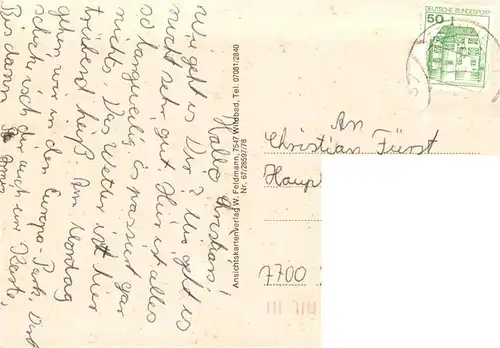 Hallo Christian!
Wie geht es Dir? Mir geht es
nicht sehr gut. Hier ist alles
so langweilig es passiert gar
nichts. Das Wetter ist hier
trübend heiß. Am Montag
gehen wir in den Europa-Park. Dort
schick ich dir auch eine Karte.
Bis dann
Ansichtskartenverlag W. Feldmann, 7547 Wildbad, Tel. 07081/2840
Nr. 67/26597/76
DEUTSCHE BUNDESPOST
50
An
Christian Fürst
Haup
7700